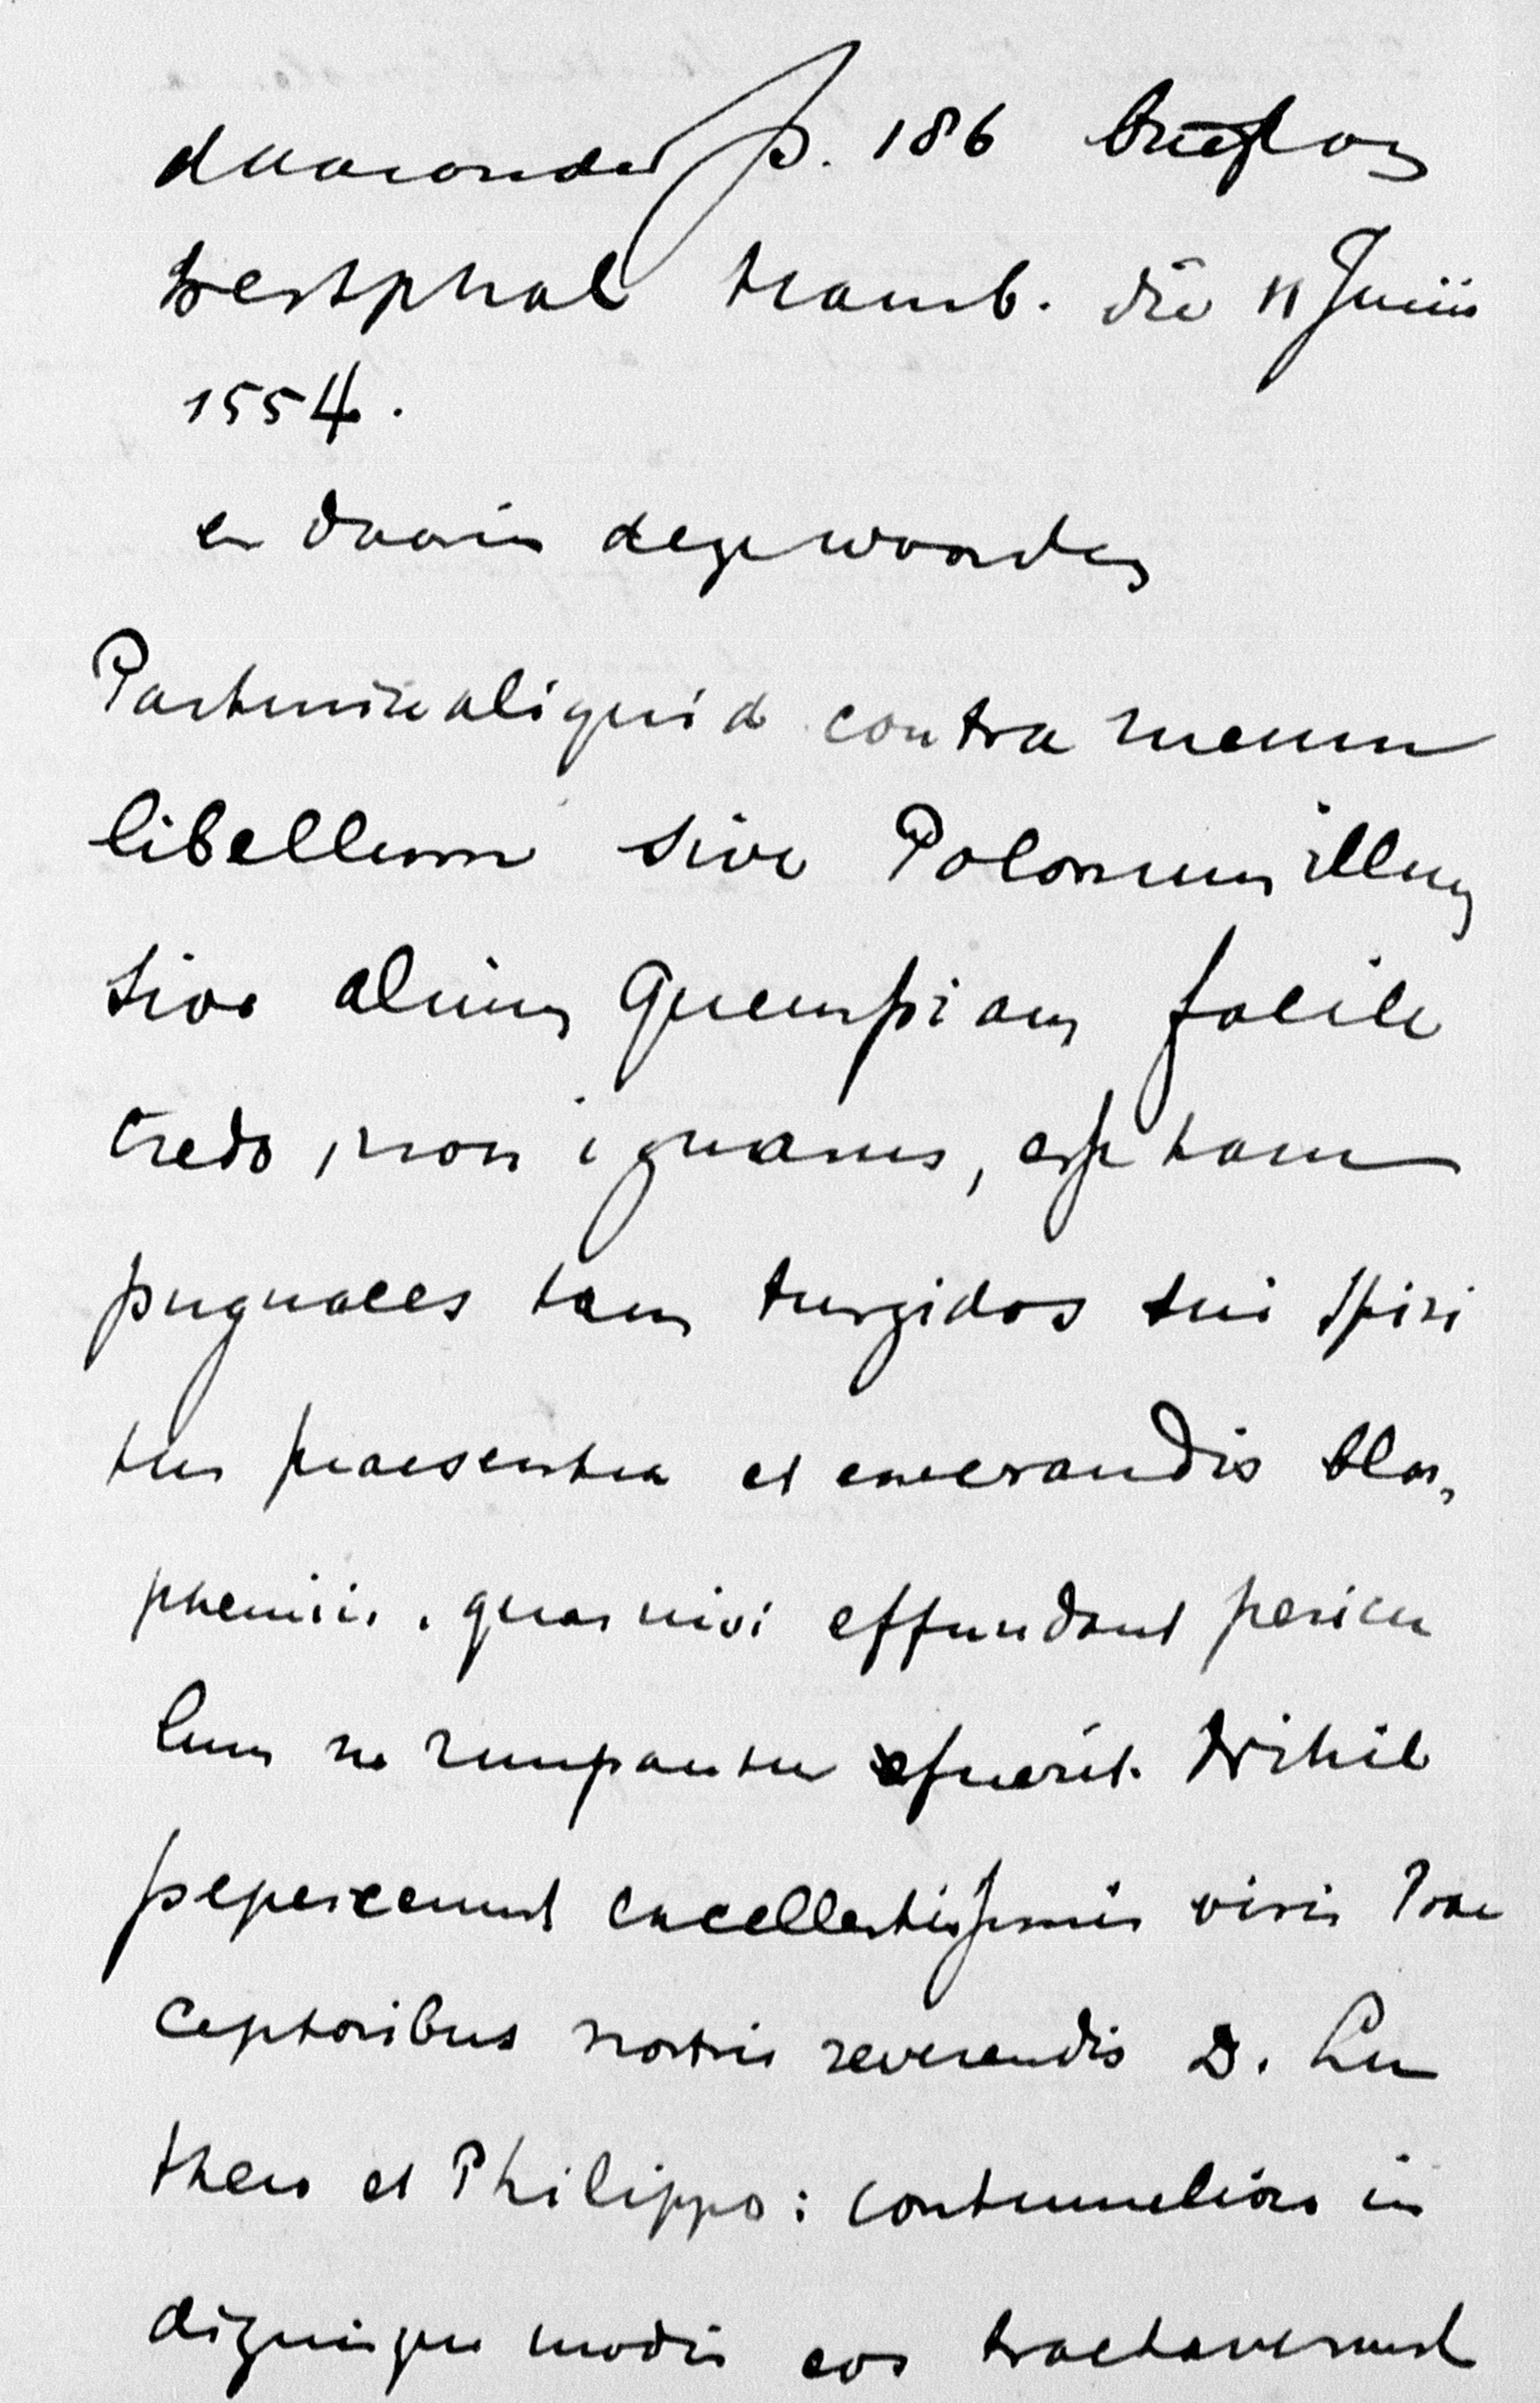 daaronder p. 186 brief van
Westphal Hamb. die 11 Junii
1554.
en daarin deze woorden
Parturire aliquid contra meum
libellum sive Polonum illum
sive alium quempiam facile
credo, non ignarus, esse tam
pugnaces tam turgidos sui spiri
tus praesentia et execrandis blas,
phemiis. quas nisi effundant pericu
lum ne rumpantur fuerit. Nihil
pepercerunt excellentissimis viris Prae
ceptoribus nostris reverendis D. Lu
thero et Philippo: contumeliose in
dignisque modis eos tractaverunt